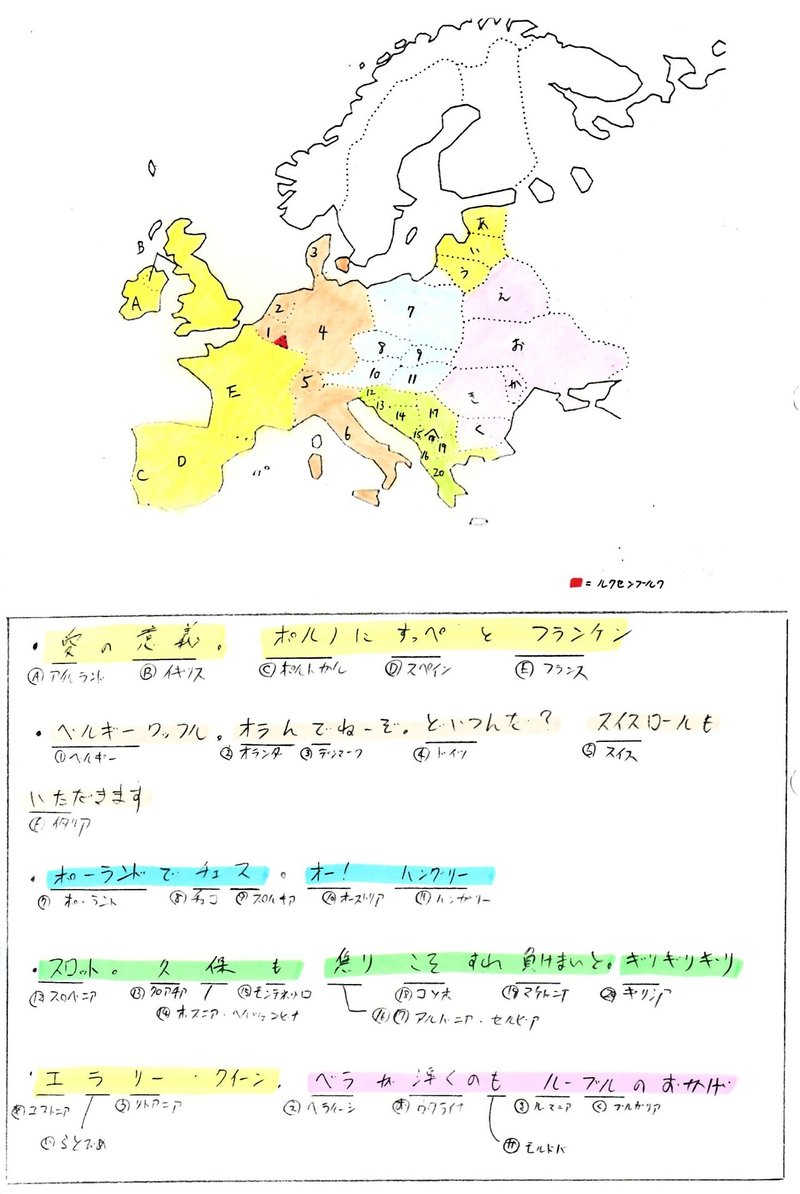 B
A
E
C
D
3
2
1
4
5
6
7
8
9
10
11
12
13
14
17
15
18
19
16
20
あ
い
う
え
お
き
か
く
=ルクセンブルク
・愛の意義。 ポルノにすっぺとフランケン
Ⓐアイルランド Ⓑイギリス Ⓒポルトガル Ⓓスペイン Ⓔフランス
・ベルギーワッフル。オランでねーぞ。どいつんだ? スイスロールも
①ベルギー ②オランダ ③デンマーク ④ドイツ ⑤スイス
いただきます
⑥イタリア
・ポーランドでチェス。オー! ハングリー
⑦ポーランド ⑧チェコ ⑨スロバキア ⑩オーストリア ⑪ハンガリー
・スロット。久保も 焦りこそすれ負けまいと。ギリギリギリ
⑫スロベニア ⑬クロアチア ⑮モンテネグロ ⑱コソボ ⑲マケドニア ⑳ギリシア
⑭ボスニア・ヘルツェゴビナ ⑯⑰アルバニア・セルビア
・エラリー・クイーン。ベラが浮くのもルーブルのおかげ
エストニア ⓤリトアニア ベラルーシ ウクライナ ルーマニア ブルガリア
らとびあ
モルドバ